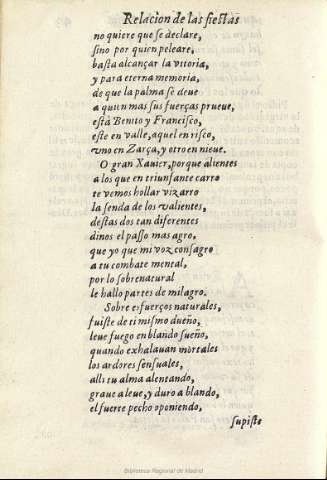 Relacion de las fiestas
no quiere que se declare,
sino por quien peleare,
basta alcançar la vitoria,
y para eterna memoria,
de que la palma se deue
a quien mas sus fuerças prueue,
està Benito y Francisco,
este en valle, aquel en risco,
vno en Zarça, y otro en nieue.
O gran Xauier, porque alientes
a los que en triunfante carro
te vemos hollar vizarro
la senda de los valientes,
destas dos tan diferentes
dinos el passo mas agro,
que yo que mi voz consagro
a tu combate mental,
por lo sobrenatural
le hallo partes de milagro.
Sobre esfuerços naturales,
fuiste de ti mismo dueño,
leue fuego en blando sueño,
quando exhalauan mortales
los ardores sensuales,
alli tu alma alentando,
graue a leue, y duro a blando,
el fuerte pecho oponiendo,
supiste
Biblioteca Regional de Madrid